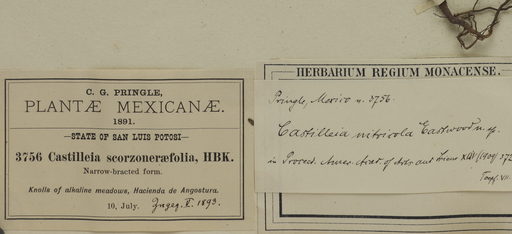 C. G. PRINGLE,
PLANTÆ MEXICANÆ.
1891.
—STATE OF SAN LUIS POTOSI—
3756 Castilleia scorzoneræfolia, HBK.
Narrow-bracted form.
Knolls of alkaline meadows, Hacienda de Angostura.
10, July. Zugeg. V. 1893.
HERBARIUM REGIUM MONACENSE.
Pringle, Mexico n. 3756.
Castilleia nitricola Eastwood n. sp.
in Proceed. Amer. Acad. of Arts and Sciences XLIV (1909) 572